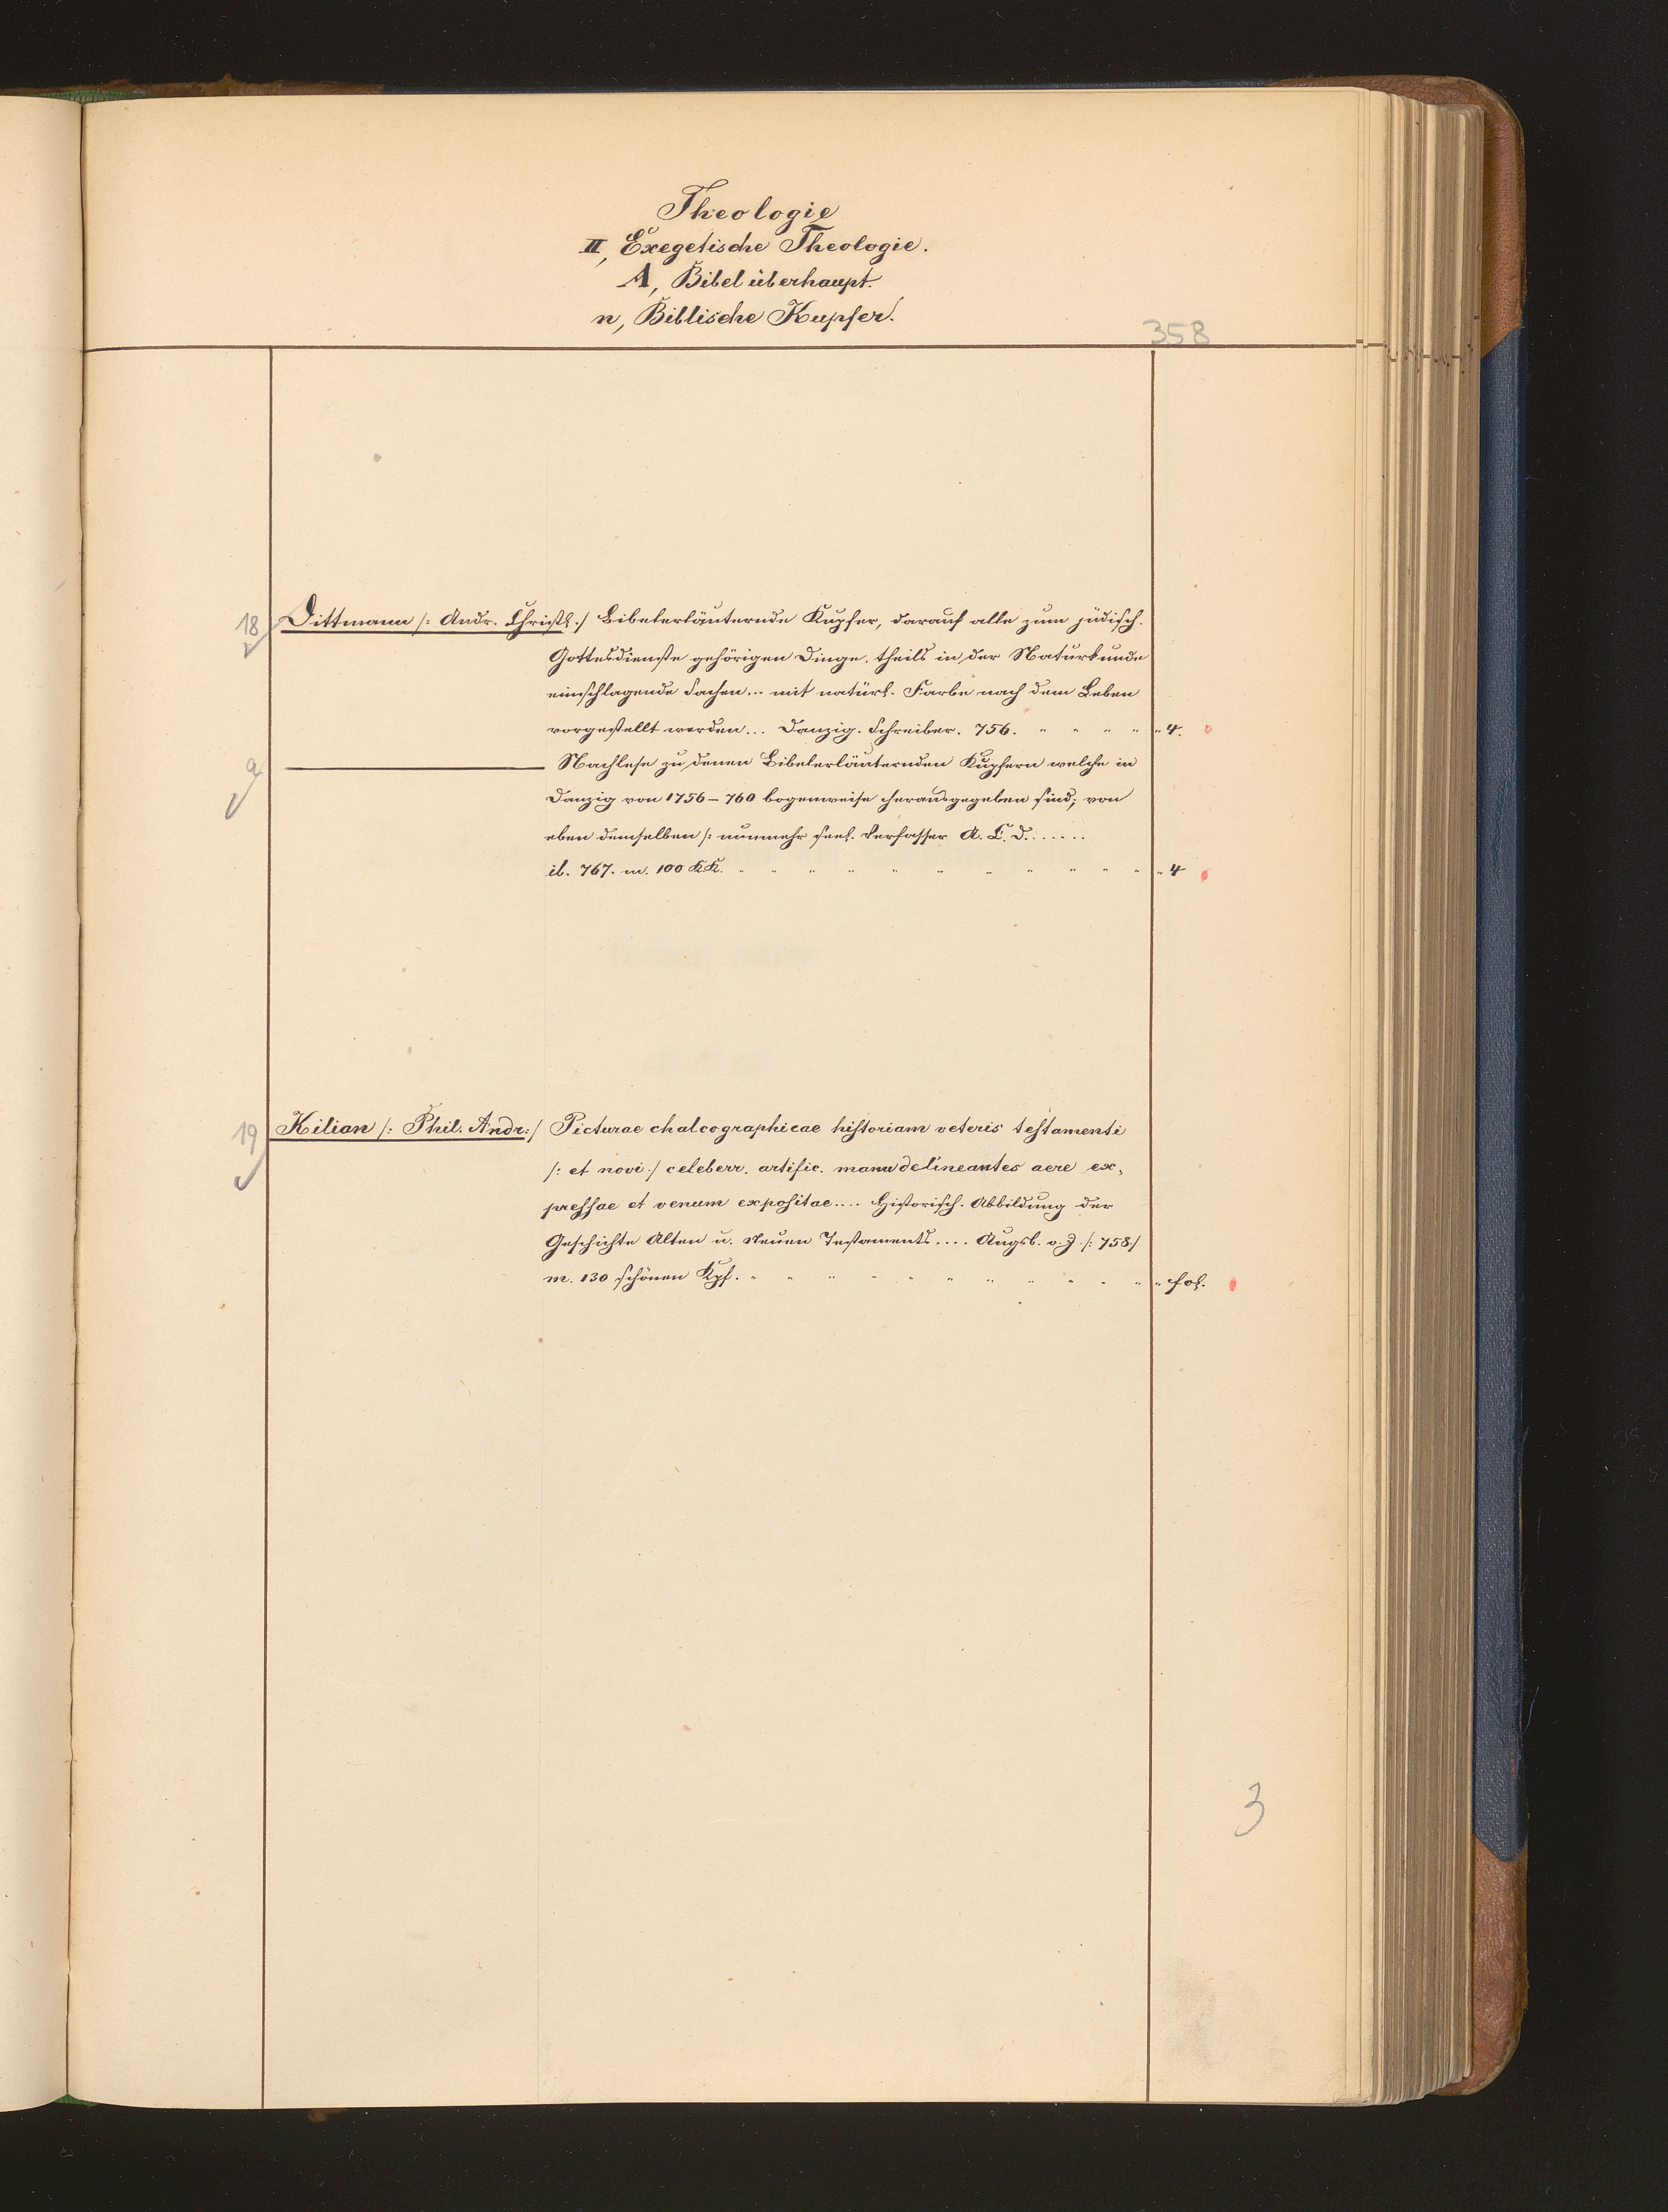 Theologie
II, Exegetische Theologie.
A, Bibel überhaupt.
n, Biblische Kupfer.
358
18 Dittmann /: Andr. Christ. :/ Bibelerläuternde Kupfer, darauf alle zum jüdisch.
Gottesdienste gehörigen Dinge, theils in der Naturkunde
einschlagende Sachen... mit natürl. Farbe nach dem Leben
vorgestellt werden... Danzig. Schreiber. 756. " " " " " 4.
a ——— Nachlese zu denen Bibelerläuternden Kupfern welche in
Danzig von 1756 – 760 bogenweise herausgegeben sind; von
eben demselben /: nunmehr seel. Verfasser A. C. D.......
ib. 767. m. 100 KK. " " " " " " " " " " " " 4
19 Kilian /: Phil. Andr: / Picturae chalcographicae historiam veteris testamenti
/: et novi :/ celeberr. artific. manu delineantes aere ex,
pressae et venum expositae.... Historisch. Abbildung der
Geschichte Alten u. Neuen Testaments.... Augsb. o. J. /: 758 /
m. 130 schönen Kpf. " " " " " " " " " " " " fol.
3